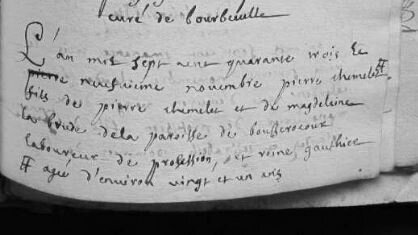 curé de bourbeville
L'an mil sept cent quarante trois le
neufvieme novembre pierre chemelet #
fils de pierre chemelet et de magdeleine
la brude de la paroisse de bousseroeour
laboureur de profession, et reine gauthier
# agié d'environ vingt et un ans